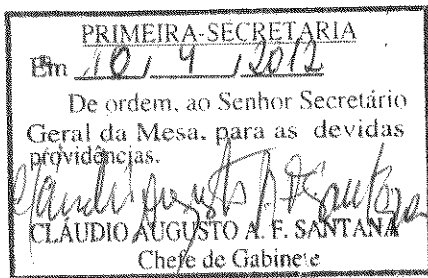 PRIMEIRA-SECRETARIA
Em 10 / 4 / 2012
De ordem, ao Senhor Secretário
Geral da Mesa, para as devidas
providências.
CLÁUDIO AUGUSTO A. F. SANTANA
Chefe de Gabinete